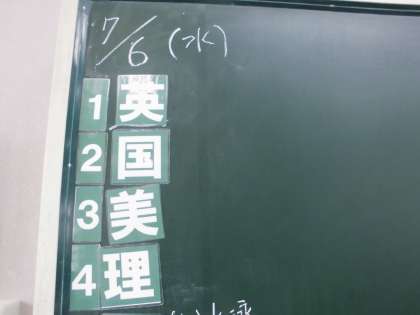 7/6 (水)
1 英
2 国
3 美
4 理